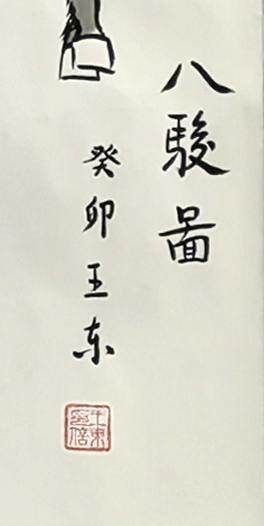 八駿啚
癸卯王东